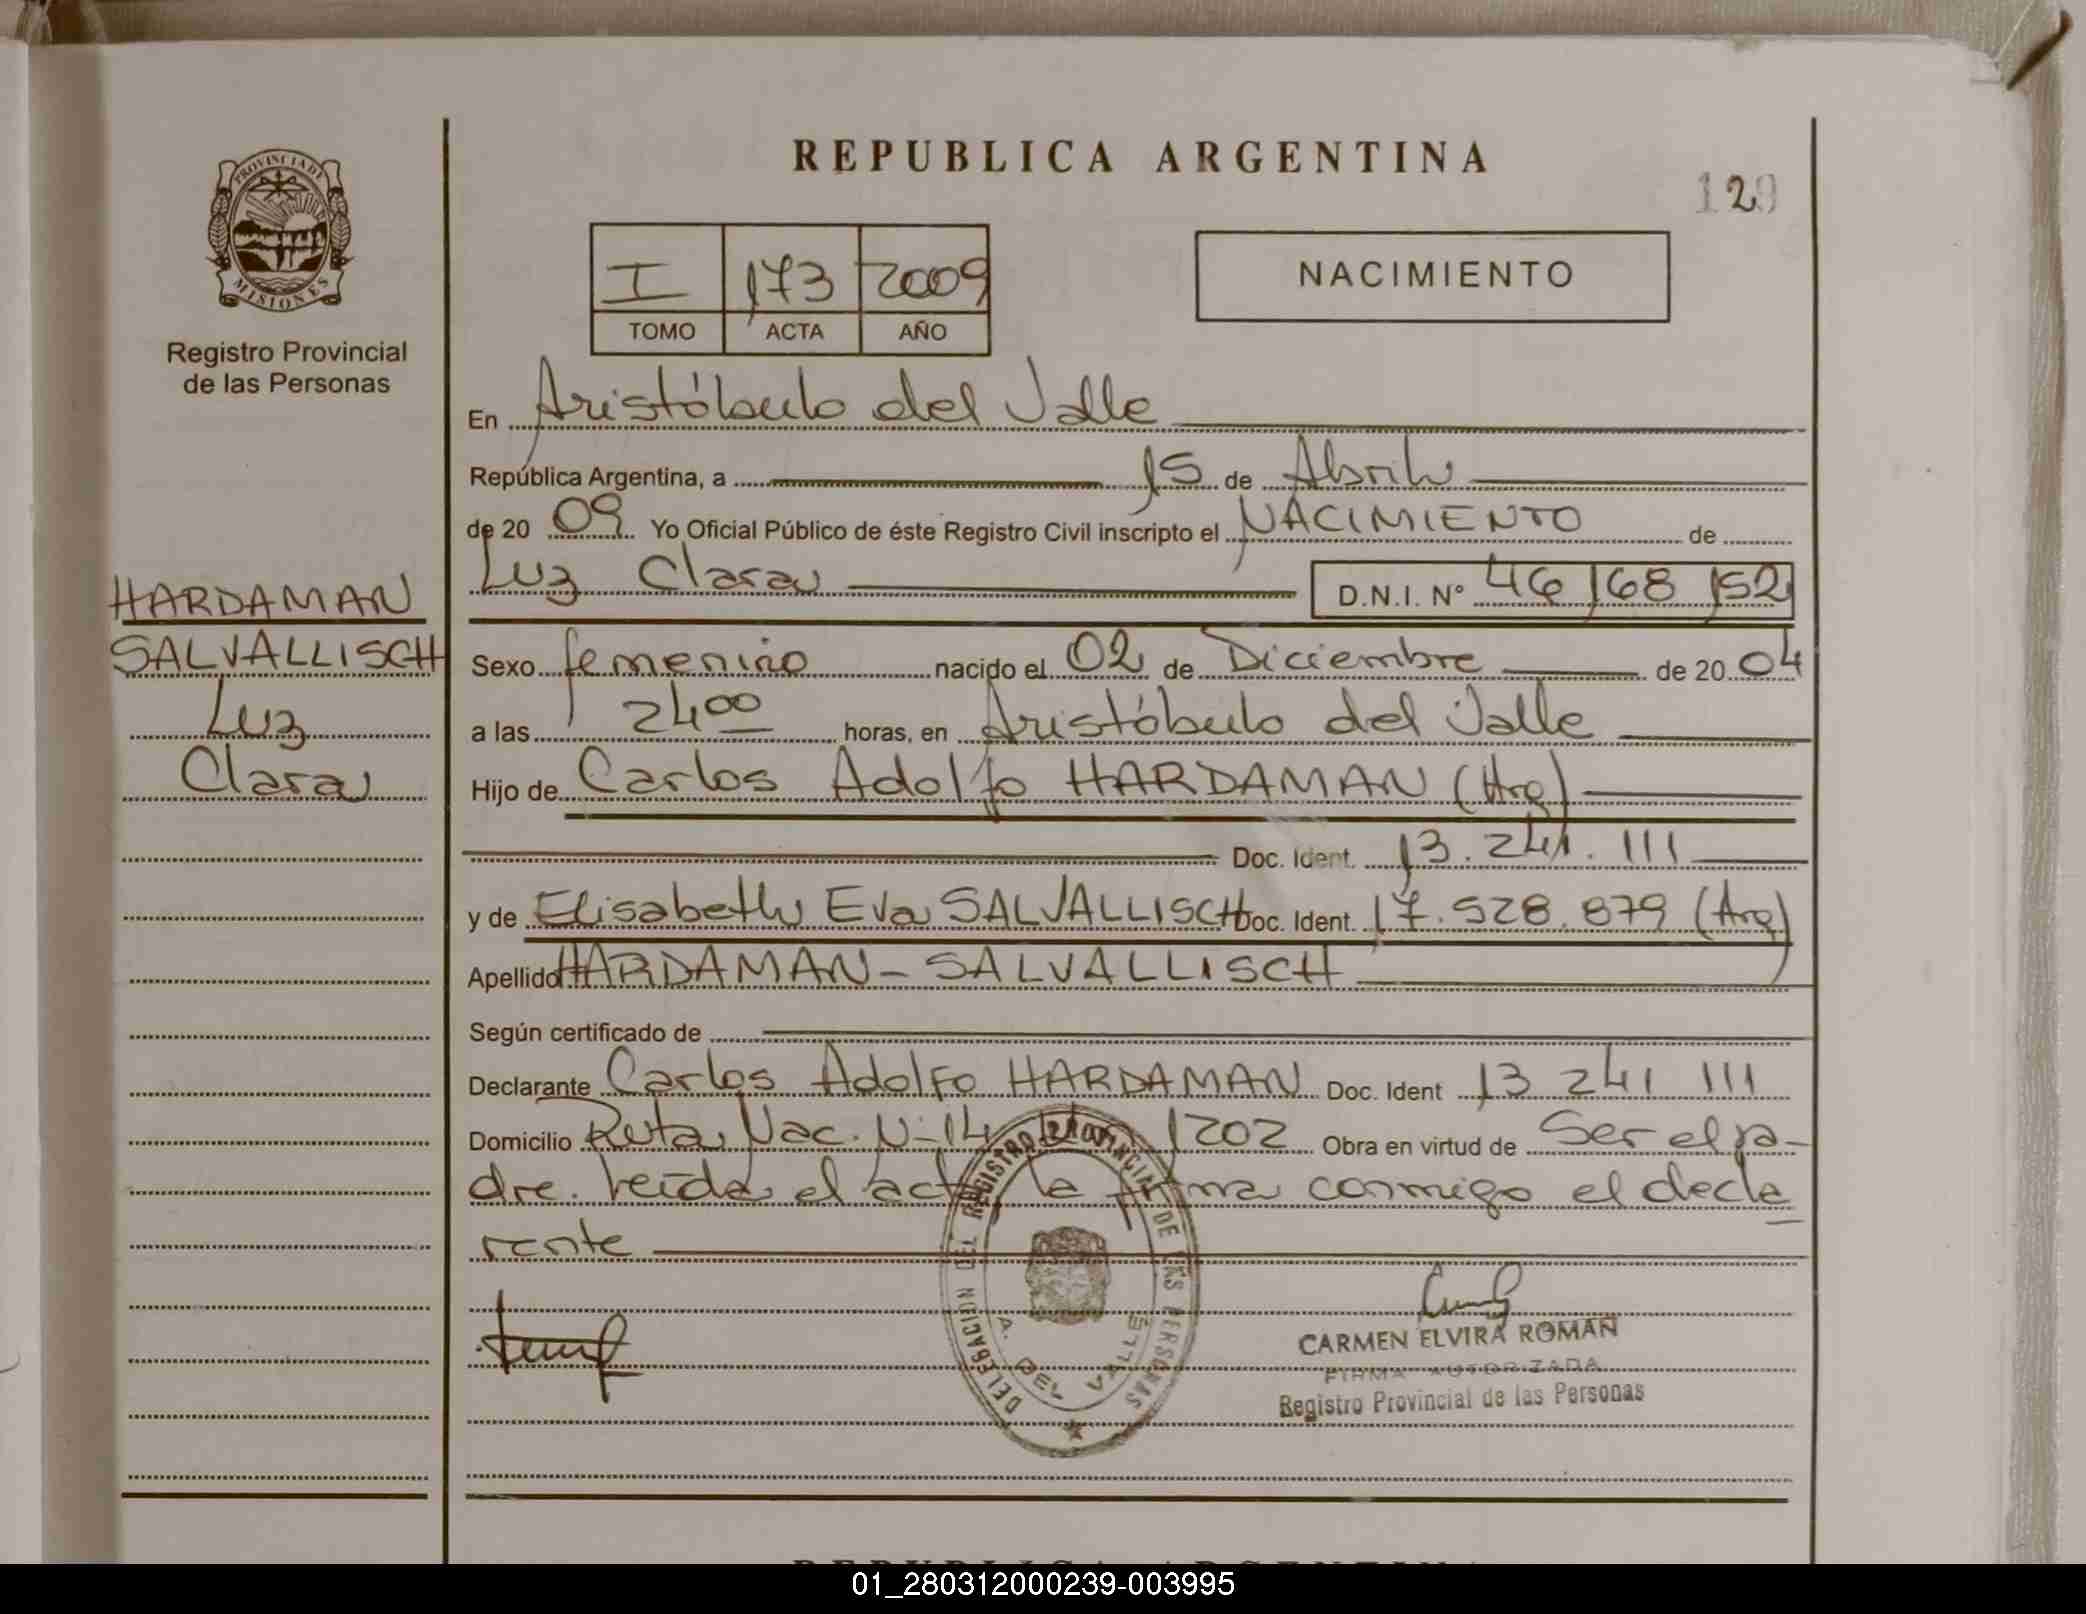 REPUBLICA ARGENTINA
129
PROVINCIA DE MISIONES
Registro Provincial
de las Personas
I 173 2009
TOMO ACTA AÑO
NACIMIENTO
HARDAMAN
SALVALLISCH
Luz
Clara
En Aristóbulo del Valle
República Argentina, a 15 de Abril
de 20 09 Yo Oficial Público de éste Registro Civil inscripto el NACIMIENTO de
Luz Clara D.N.I. Nº 46 168 152
Sexo femenino nacido el 02 de Diciembre de 20 04
a las 24 00 horas, en Aristóbulo del Valle
Hijo de Carlos Adolfo HARDAMAN (Arg)
Doc. Ident. 13.241.111
y de Elisabeth Eva SALVALLISCH Doc. Ident. 17.528.879 (Arg)
Apellido HARDAMAN - SALVALLISCH
Según certificado de
Declarante Carlos Adolfo HARDAMAN Doc. Ident 13 241 111
Domicilio Ruta Nac. N-14 1202 Obra en virtud de Ser el pa-
dre. Leída el acta la firma conmigo el decla
rante
DELEGACION DEL REGISTRO PROVINCIAL DE LAS PERSONAS
A. DEL VALLE
CARMEN ELVIRA ROMAN
FIRMA AUTORIZADA
Registro Provincial de las Personas
REPUBLICA ARGENTINA
01_280312000239-003995